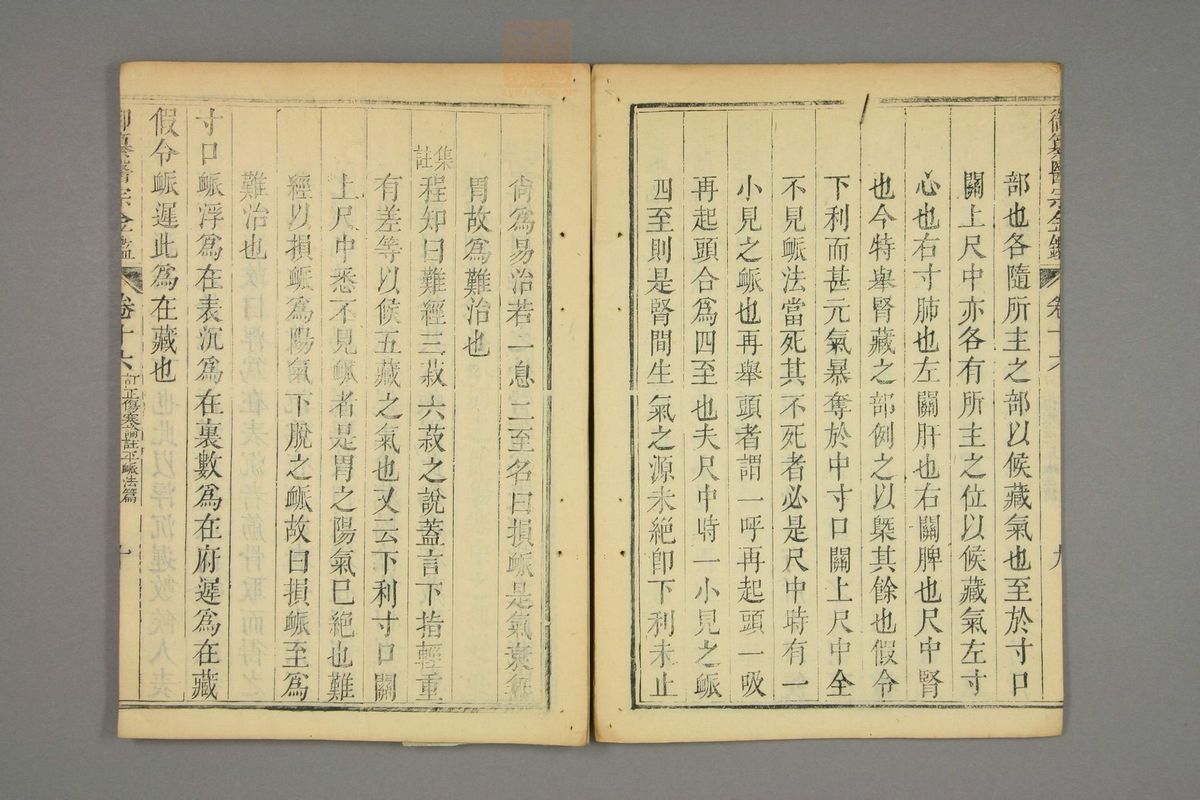 御纂醫宗金鑑 卷十六 九
部也各隨所主之部以候藏氣也至於寸口
關上尺中亦各有所主之位以候藏氣左寸
心也右寸肺也左關肝也右關脾也尺中腎
也今特舉腎藏之部例之以槩其餘也假令
下利而甚元氣暴奪於中寸口關上尺中全
不見衇法當死其不死者必是尺中時有一
小見之衇也再舉頭者謂一呼再起頭一吸
再起頭合爲四至也夫尺中時一小見之衇
四至則是腎間生氣之源未絶卽下利未止
尙爲易治若一息二至名曰損衇是氣衰無
胃故爲難治也
集註
程知曰難經三菽六菽之說蓋言下指輕重
有差等以候五藏之氣也又云下利寸口關
上尺中悉不見衇者是胃之陽氣已絕也難
經以損衇爲陽氣下脫之衇故曰損衇至爲
難治也
寸口衇浮爲在表沉爲在裏數爲在府遲爲在藏
假令衇遲此爲在藏也
御纂醫宗金鑑 卷十六 訂正傷寒論註平衇法篇 十